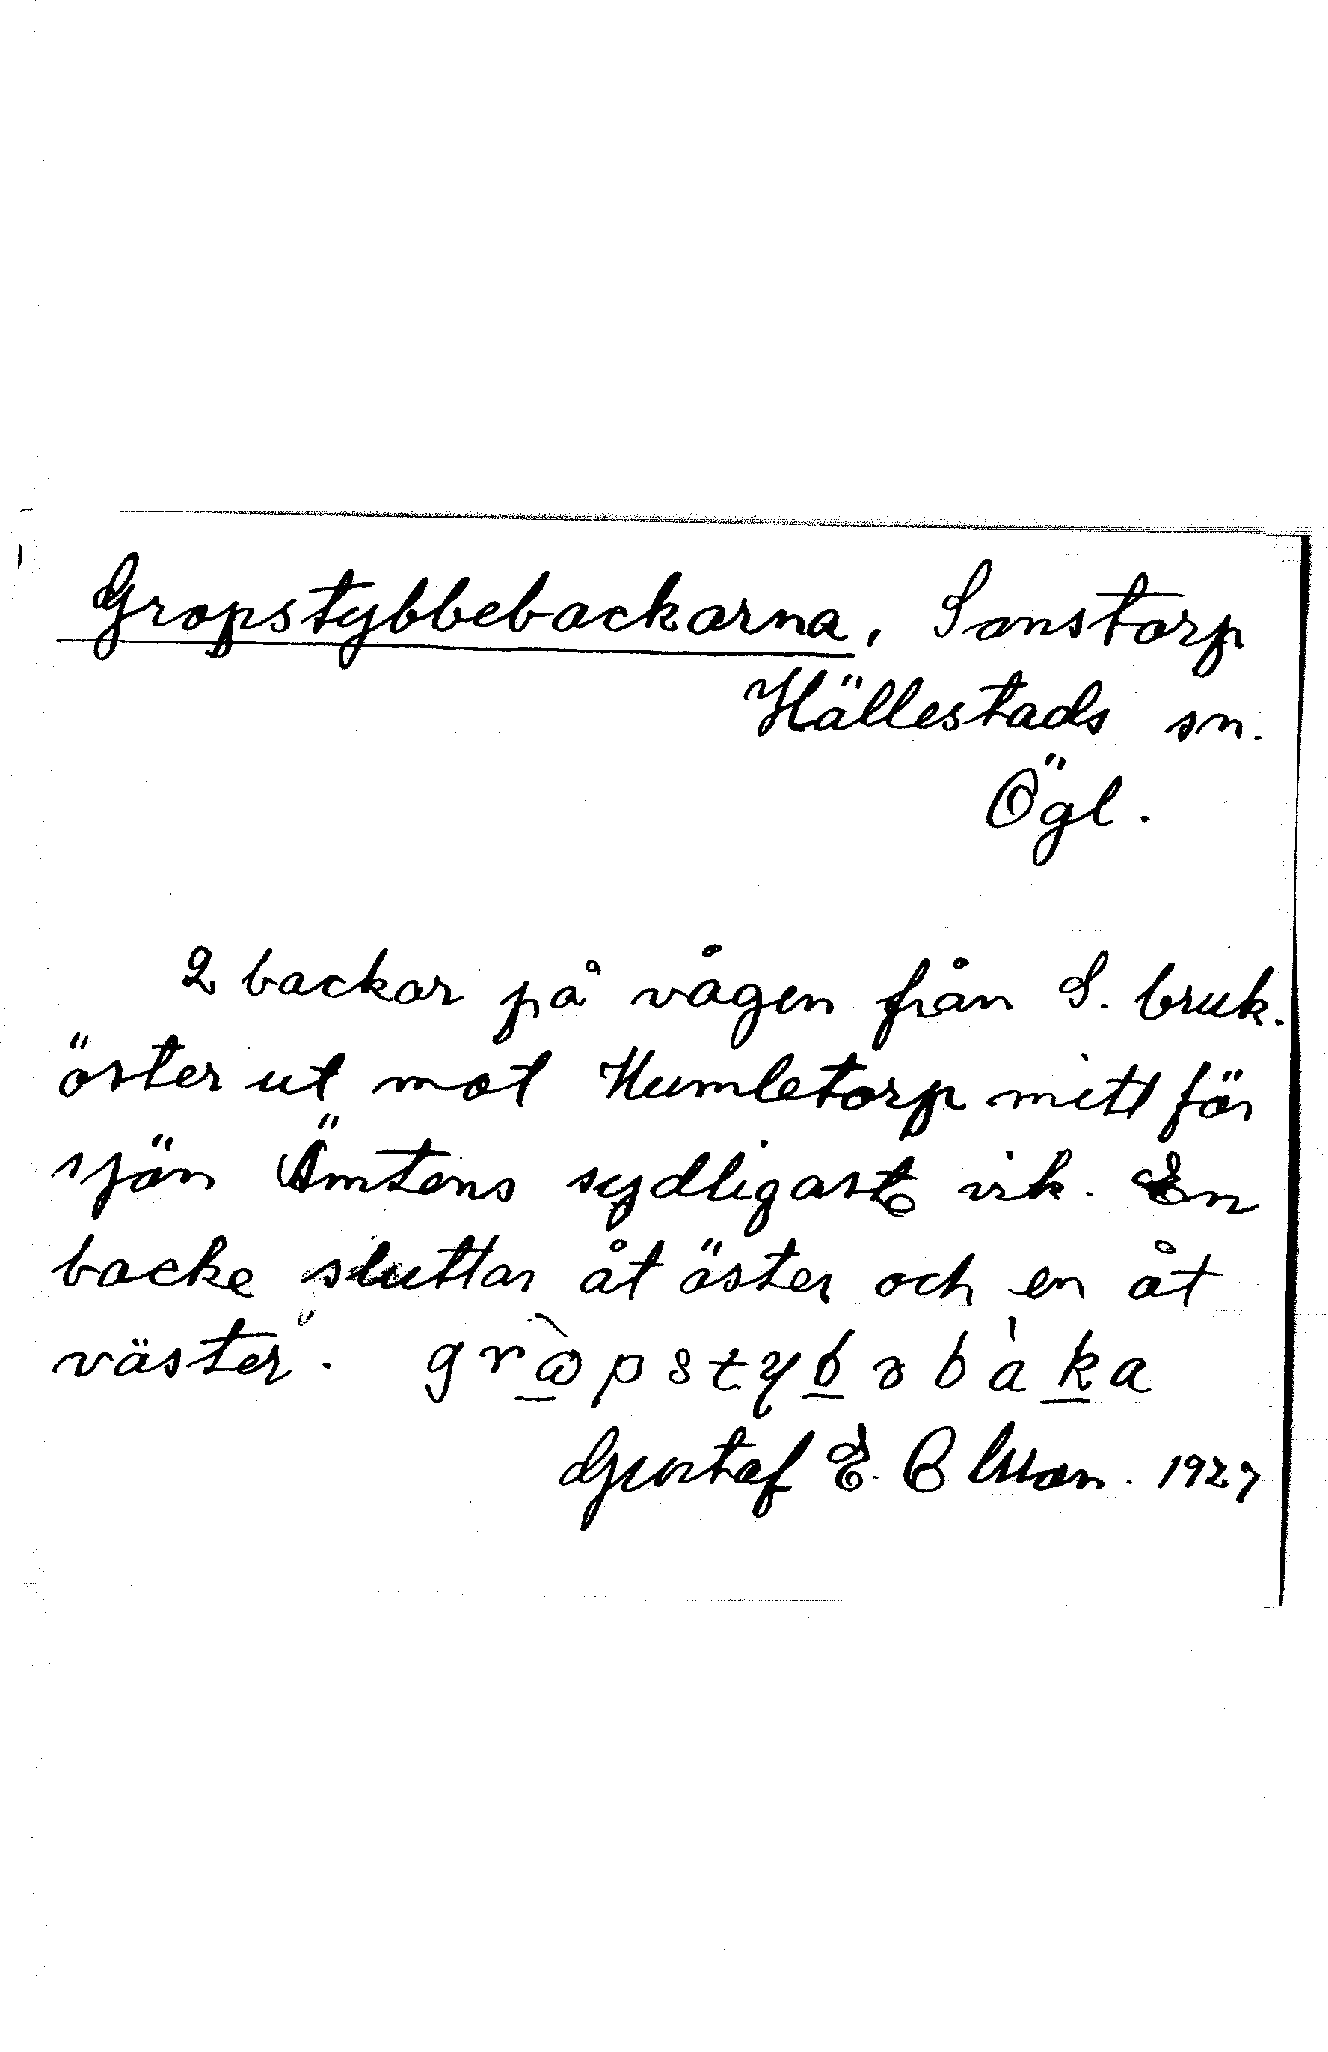 Gropstybbebackarna, Sonstorp
Hällestads sn.
Ögl.
2 backar på vägen från S. bruk.
öster ut mot Humletorp mitt för
sjön Ämtens sydligaste vik. En
backe sluttar åt öster och en åt
väster. 
Gustaf E. Olsson. 1927